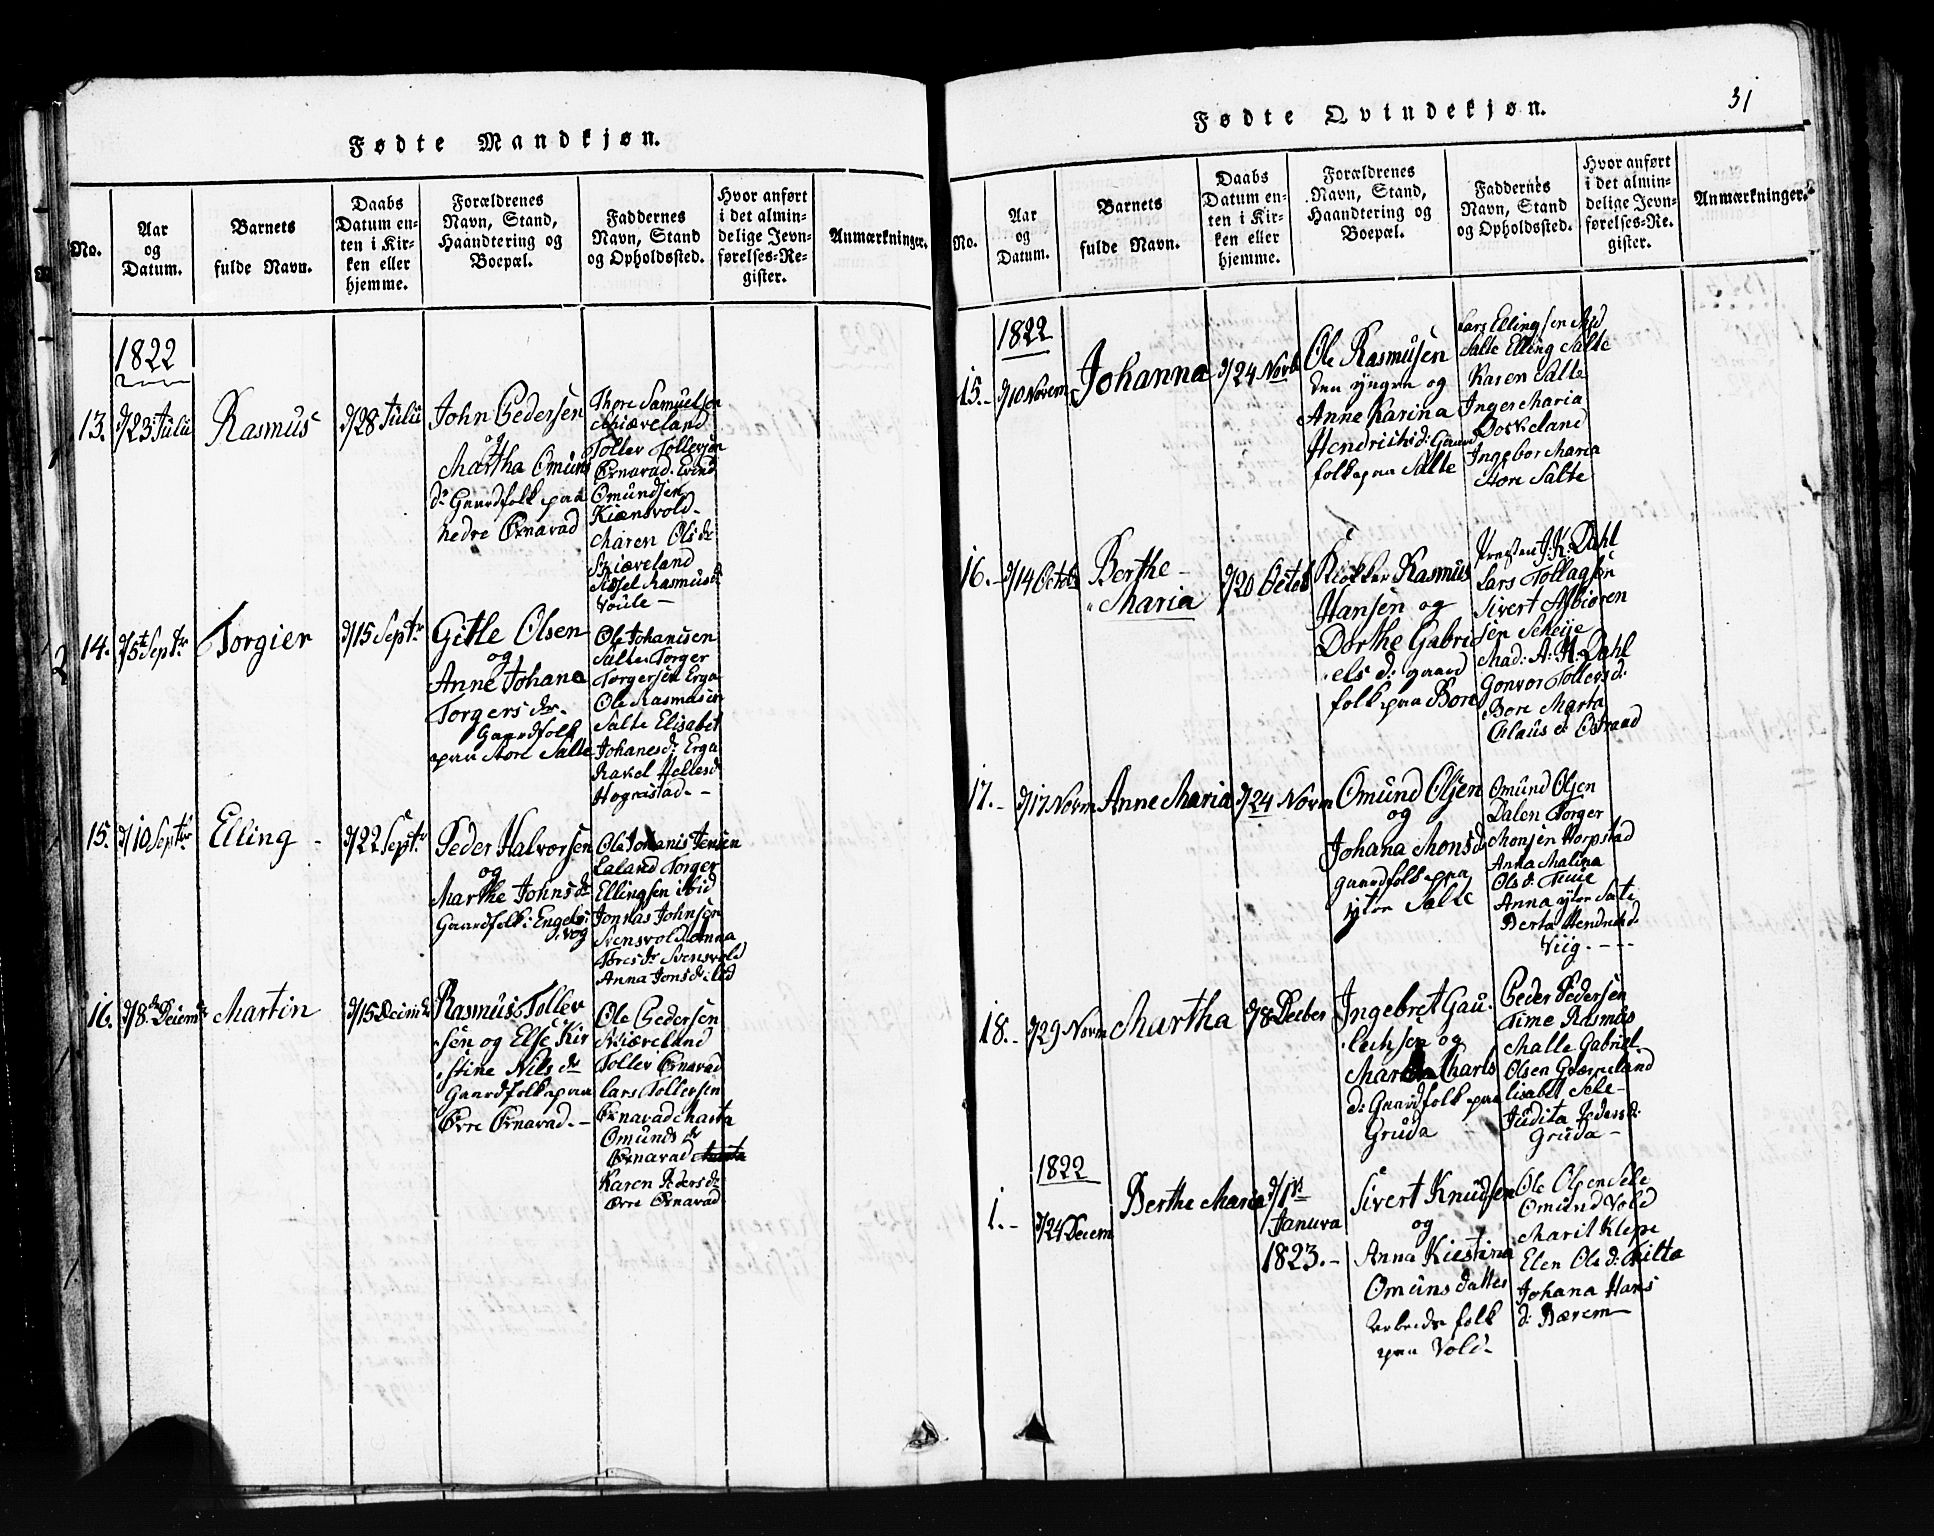 Fødte Mandkjøn.
No.
Aar
og
Datum.
Barnets
fulde Navn.
Daabs
Datum en-
ten i Kir-
ken eller
hjemme.
Forældrenes
Navn, Stand,
Haandtering og
Boepæl.
Faddernes
Navn, Stand
og Opholdssted.
Hvor anført
i det almin-
delige Jevn-
førelses-Re-
gister.
Anmærkninger.
1822
13.
d/23 Julii
Rasmus
d/28 Julii
John Pedersen
og
Martha Omunds
dr Gaardfolk paa
nedre Ørnavad
Thore Samuelsen
Skiæveland
Toller Tollevsen
Ørnavad. Evind
Omundsen
Kiænsvold-
Maren Olsdr
Skiæveland
Sissel Rasmusdr
Voule-
14.
d/5t Septr
Torgier
d/15 Septr
Gitle Olsen
og
Anne Johana
Torgers dtr.
Gaardfolk
paa store Salte
Ole Johanisen
Salte Torger
Torgersen Erga
Ole Rasmusen
Salte Elisabet
Johanesdr Erga
Rakel Hellesdr
Hognestad.-
15.
d/10 Septr
Elling
d/22 Septr
Peder Halvorsen
og
Marthe Johnsdr
Gaardfolk: Engels:
vog
Ole Johanis Jensen
Laland Torger
Ellingsen ibid
Jonnas Johnsen
Svensvold Anna
Toresdr Svensvold
Anna Jonsdr ibid
16.
d/8 Deiemr
Martin
d/15 Deimr
Rasmus Tollev
sen og Else Kir
stine Nils dr
Gaardfolk paa
Øvre Ørnavad.-
Ole Pedersen
Skiæveland
Toller Ørnavad
Lars Tollevsen
Ørnavad Marta
Omunds dr
Ørnavad
Karen Pedersdr
Øvre Ørnavad
31
Fødte Qvindekjøn.
No.
Aar
og
Datum.
Barnets
fulde Navn.
Daabs
Datum en-
ten i Kir-
ken eller
hjemme.
Forældrenes
Navn, Stand,
Haandtering og
Boepæl.
Faddernes
Navn, Stand
og Opholdssted.
Hvor anført
i det almin-
delige Jevn-
førelses-Re-
gister.
Anmærkninger.
1822
15.-
d/10 Novem
Johanna
d/24 Novb
Ole Rasmusen
den yngre og
Anne Karina
Hendrichsd: Gaard
folk paa Salte
Lars Ellingsen
Salte Elling Salte
Karen Salte
Inger Maria
Ingebor Maria
Store Salte
16.-
d/14 Octb
Berthe
Maria
d/20 Octob
Klokker Rasmus
Hansen og
Dorthe Gabri
els d: gaard
folk paa Bore
Præsten J: K: Dahl
Lars Tollagsen
Sivert Asbiøren
sen Scheije
Mad: A: K: Dahl
Gonvor Tollevsd:
Bore Marta
Claus d: Østraad
17.-
d/17 Novm
Anne Maria
d/24 Novm
Omund Olsen
og
Johana Monsd:
gaardfolk paa
yter Salte
Omund Olsen
Dalen Torger
Monsen Horpstad
Anna Malina
Ols d: Tuue
Anna yter Salte
Berta Hendrichsd:
Viig.-
18.-
d/29 Novm
Martha
d/8 Decber
Ingebret Gau-
lachsen og
Martha Charls
d: Gaardfolk paa
Gruda
Peder Pedersen
Time Rasmus
Malle Gabriel
Olsen Græneland
lisabet Sele-
Judita Pedersd:
Gruda-
1822
1.-
d/24 Deiem
Berthe Maria
d/1st
Januva
1823.-
Sivert Knudsen
og
Anna Kiestina
Omuns datter
Arbeids folk
paa Vold-
Ole Olsen Sele
Omund Vold
Marit Klepe
Elen Ols d: Hilto
Johana Hans
d: Bærem